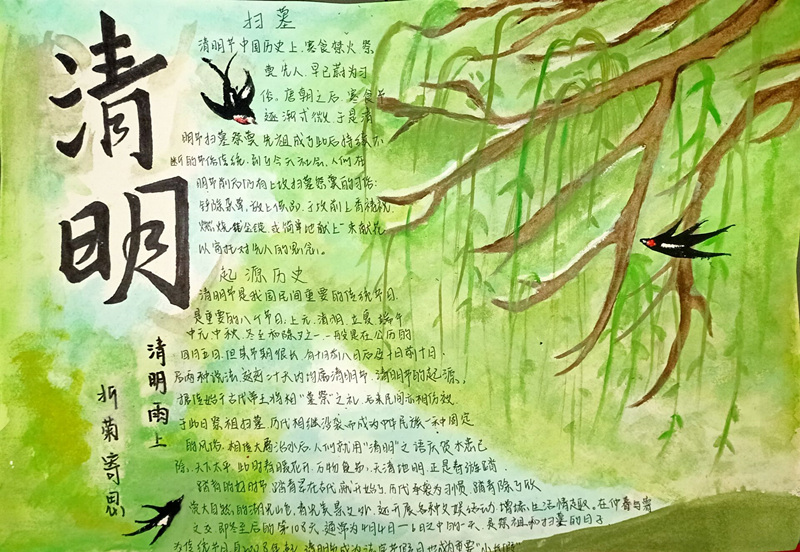 清明
扫墓
清明节中国历史上,寒食禁火,祭
奠先人,早已蔚为习
俗。唐朝之后,寒食节
逐渐式微,于是清
明节扫墓祭奠先祖成了此后持续不
断的节俗传统,到了今天社会,人们在
明节前后仍有上坟扫墓祭奠的习俗:
铲除杂草,放上供品,于坟前上香祷祝,
燃烧纸金锭,或简单地献上一束献花,
以寄托对先人的思念。
起源历史
清明节是我国民间重要的传统节日,
是重要的八个节日,上元,清明,立夏,端午
中元,中秋,冬至和除夕之一,一般是在公历的
四月五日,但其节期很长,有十日前八日后及十日前十日
后两种说法,这近二十天内均属清明节。清明节的起源,
据传始于古代帝王将相"墓祭"之礼,后来民间亦相仿效,
于此日祭祖扫墓,历代相继沿袭而成为中华民族一种固定
的风俗。相传大禹治水后,人们就用"清明"之语庆贺水患已
除,天下太平,此时春暖花开,万物复苏,天清地明,正是春游踏
踏青的好时节,踏青早在古代就开始了,历代承袭为习惯,踏青除了欣
赏大自然的湖光山色,春光美景之外,还开展各种文娱活动,增添生活情趣。在仲春与暮
之交,即冬至后的第108天,通常为4月4日—6日之中的一天,是祭祖和扫墓的日子
清明雨上
折菊寄思